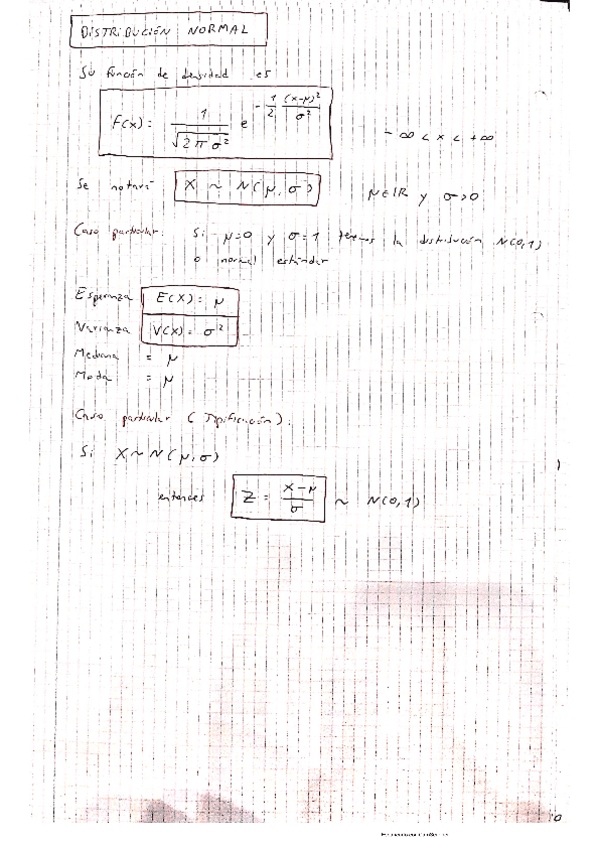 DISTRIBUCIÓN NORMAL
Su función de densidad es
F(x): 1/√(2πσ²) e^(-1/2 (x-μ)²/σ²) -∞ < x < +∞
Se notará X ~ N(μ, σ) μ∈IR y σ>0
Caso particular: Si μ=0 y σ=1 tenemos la distribución N(0,1)
o normal estándar
Esperanza E(X): μ
Varianza V(X): σ²
Mediana = μ
Moda = μ
Caso particular (Tipificación):
Si X ~ N(μ, σ)
entonces Z = (X-μ)/σ ~ N(0,1)